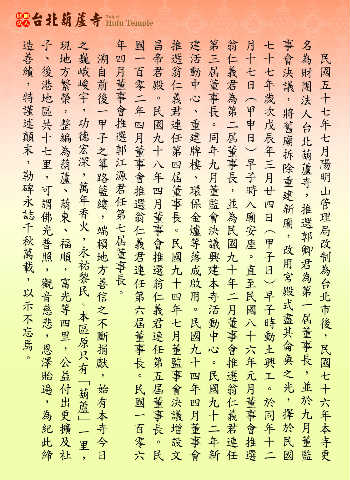 台北葫蘆寺
Taipei
Hulu Temple
民國五十七年七月陽明山管理局改制為台北市後，民國七十六年本寺更
名為財團法人台北葫蘆寺，推選郭卿君為第一屆董事長，並於九月董監
事會決議，將舊廟拆除重建新廟，改用宮殿式盡其侖奐之光，擇於民國
七十七年歲次戊辰年三月廿四日（甲子日）早子時動土興工。於同年十二
月十七日（甲申日）早子時入廟安座。直至民國八十六年元月董事會推選
翁仁義君為第二屆董事長，並為民國九十年二月董事會推選翁仁義君連任
第三屆董事長，同年九月董監會決議興建本寺活動中心。民國九十二年新
建活動中心、重建牌樓、環保金爐等落成啟用。民國九十四年四月董事會
推選翁仁義君連任第四屆董事長。民國九十四年七月董監事會決議增設文
昌帝君殿。民國九十八年四月董事會推選翁仁義君連任第五屆董事長。民
國一百零二年四月董事會推選翁仁義君連任第六屆董事長。民國一百零六
年四月董事會推選郭江源君任第七屆董事長。
溯自前後一甲子之篳路籃縷，端賴地方善信之不斷捐獻，始有本寺今日
之巍峨峻宇，功德宏深，萬年香火，永祐黎民。本區原只有「葫蘆」一里，
現地方繁榮，整編為葫蘆、葫東、福順、富光等四里，公益付出更擴及社
子、後港地區共十七里，可謂佛光普照，觀音慈悲，恩澤貽遍，為紀此締
造善績，特謹述顛末，勒碑永誌千秋萬載，以示不忘焉。